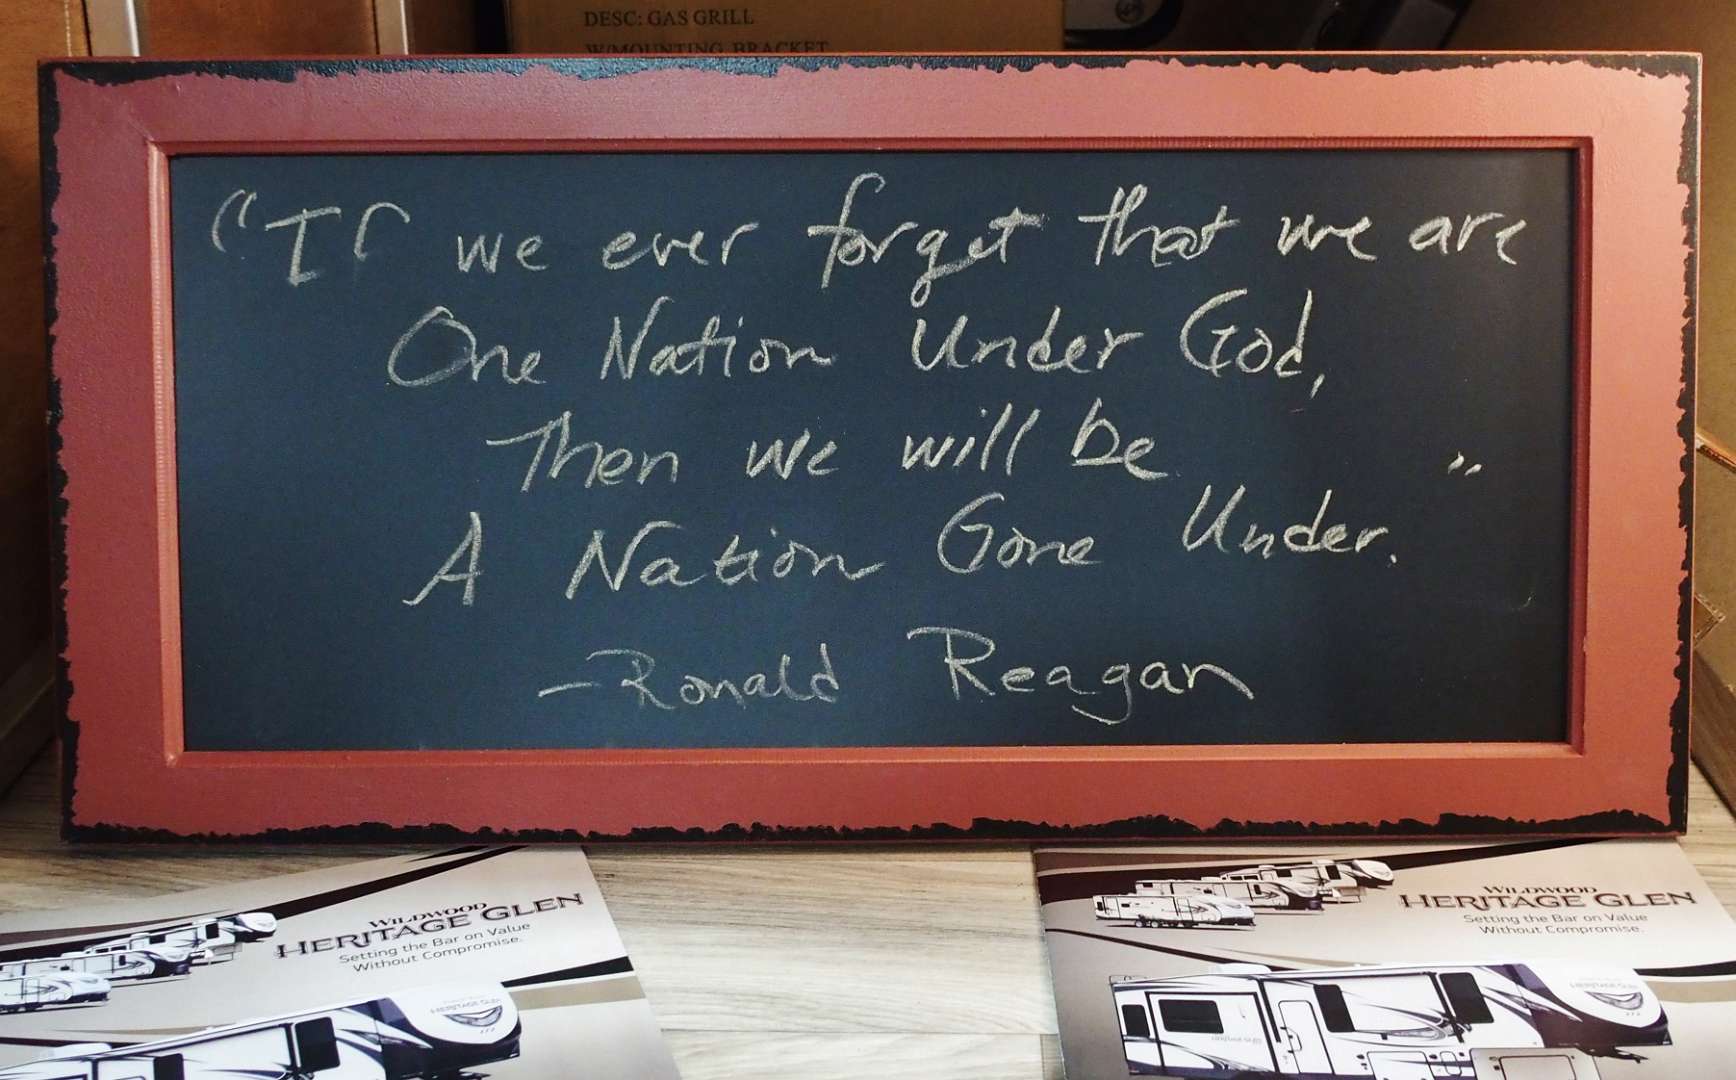 DESC: GAS GRILL
W/MOUNTING BRACKET
"If we ever forget that we are
One Nation Under God,
Then we will be
A Nation Gone Under."
-Ronald Reagan
WILDWOOD
HERITAGE GLEN
Setting the Bar on Value
Without Compromise.
HERITAGE GLEN
WILDWOOD
HERITAGE GLEN
Setting the Bar on Value
Without Compromise.
HERITAGE GLEN